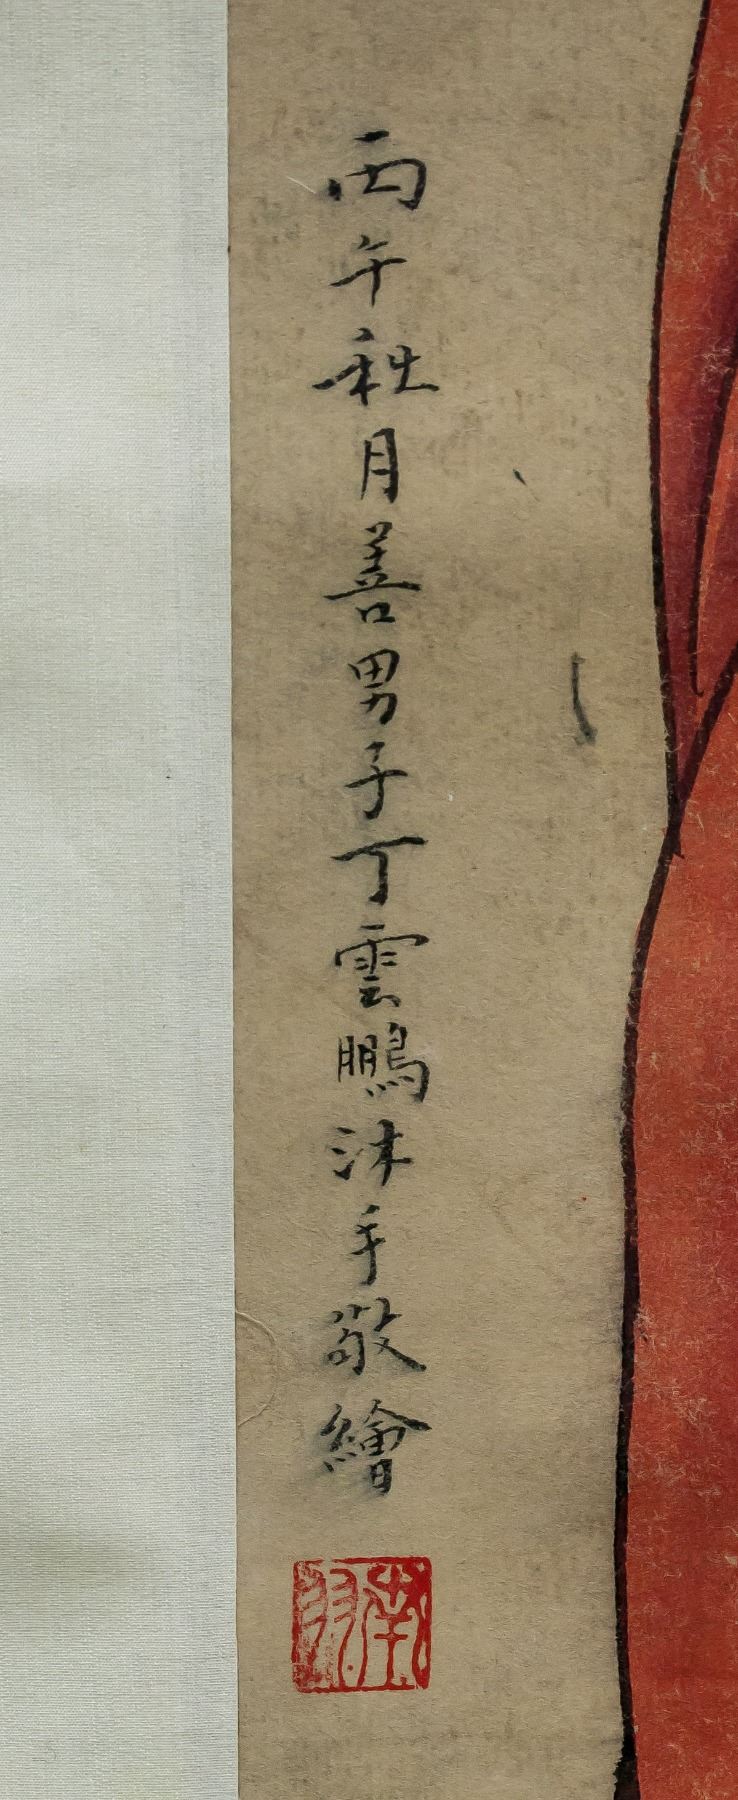 丙午秋月善男子丁雲鵬沐手敬繪
南羽